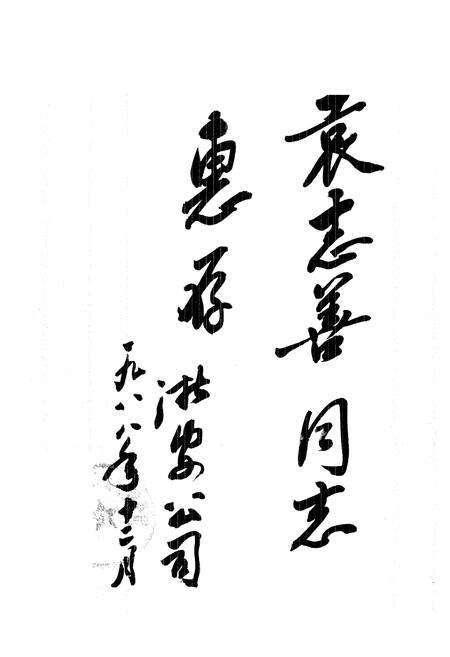 袁志善同志
惠存
安公司
一九八八年十二月